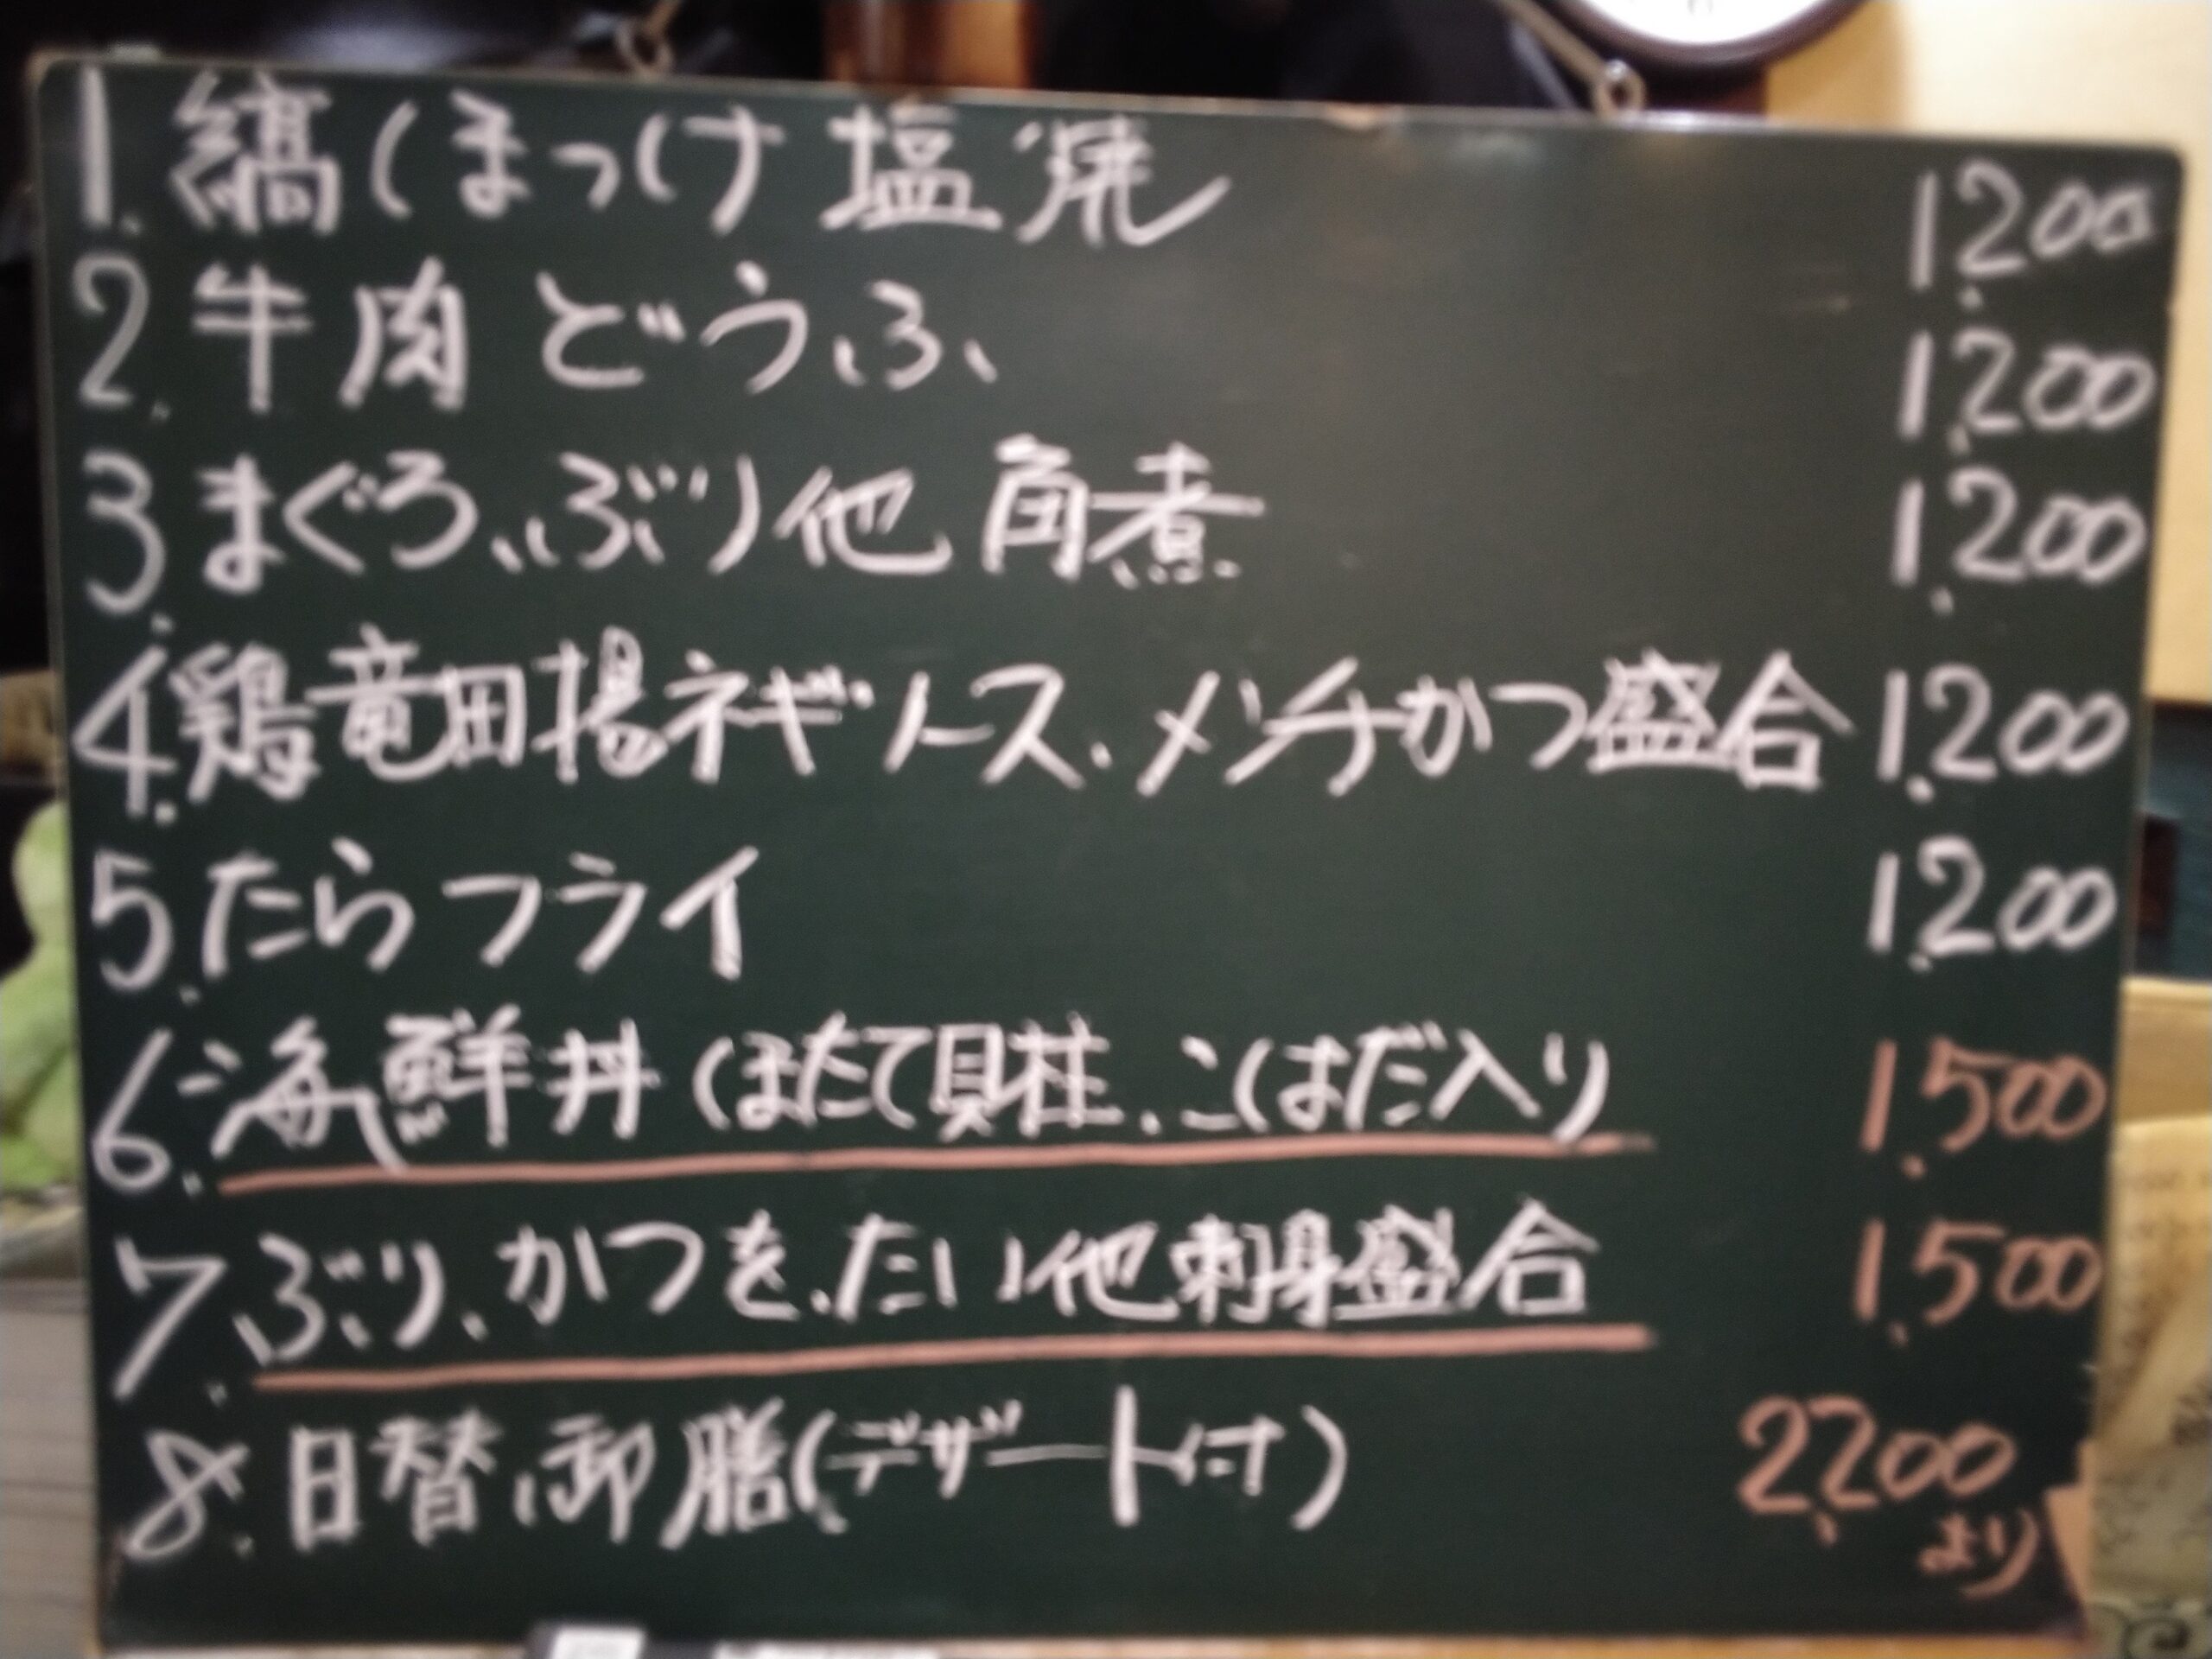 1.縞ほっけ塩焼 1.200
2.牛肉どうふ 1.200
3.まぐろ、ぶり他角煮 1.200
4.鶏竜田揚ネギソース、メンチかつ盛合 1.200
5.たらフライ 1.200
6.海鮮丼(ほたて貝柱、こはだ入り) 1.500
7.ぶり、かつを、たい他刺身盛合 1.500
8.日替御膳(デザート付) 2.200
より